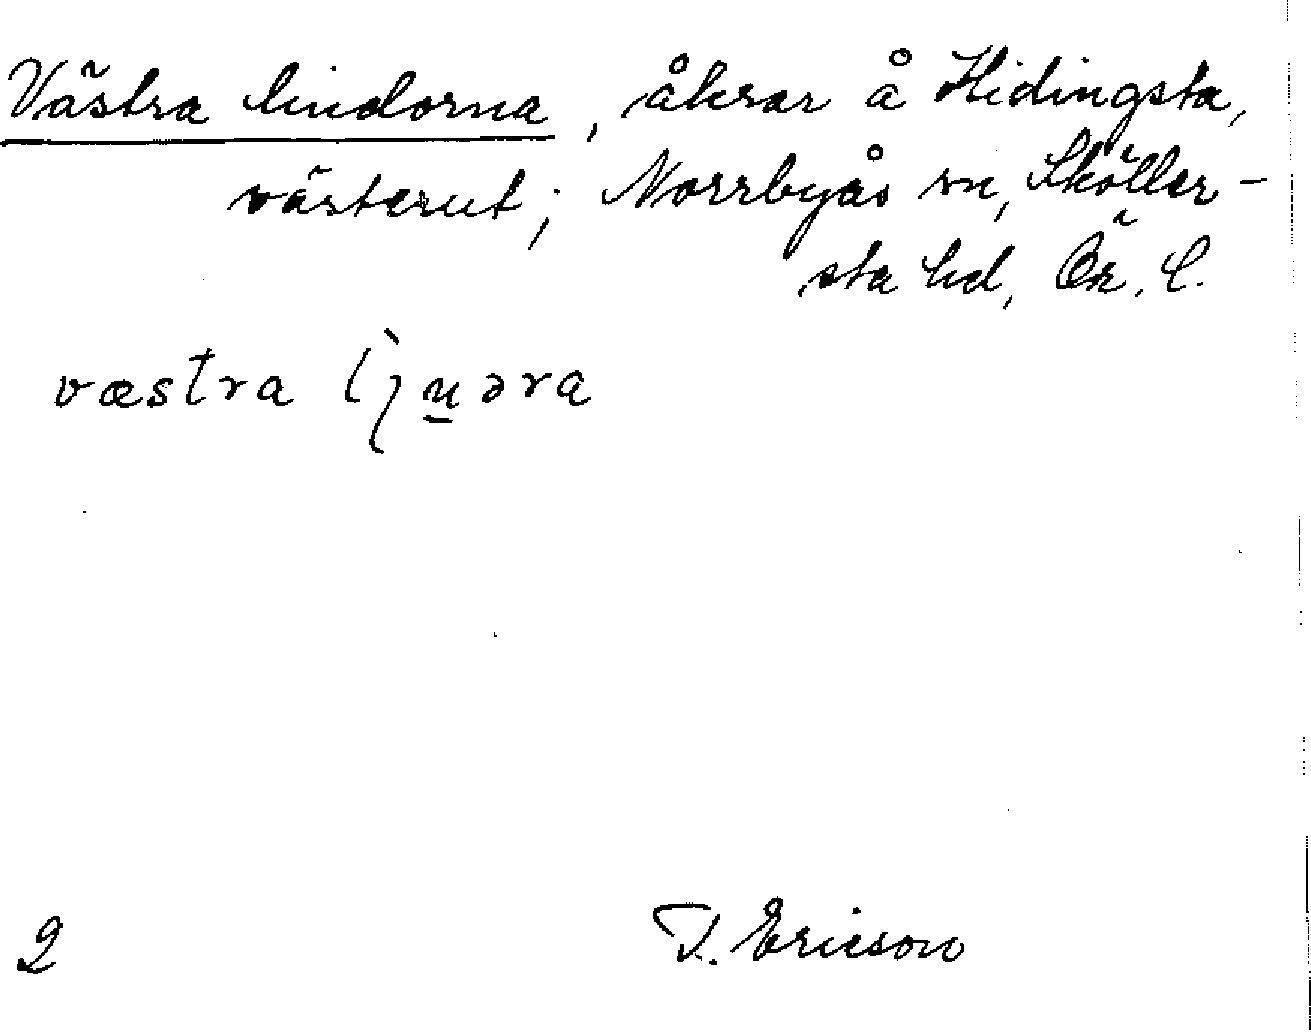 Västra lindorna, åkrar å Hidingsta,
västerut; Norrbyås sn, Sköller-
sta hd, Ör. l.
væstra
2
T. Ericson